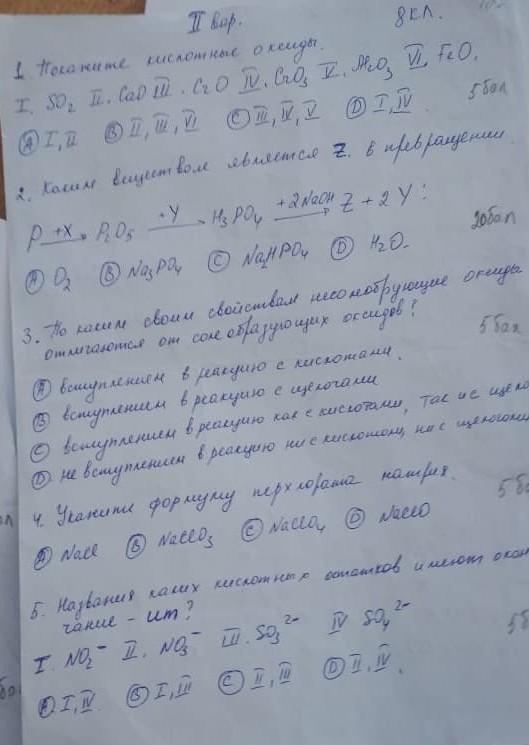 II вар. 8 кл.
1. Покажите кислотные оксиды.
I. SO₂ II. CaO III. CrO IV. CrO₃ V. Al₂O₃ VI. FeO. 5 бал
Ⓐ I, II Ⓑ II, III, VI Ⓒ III, IV, V Ⓓ I, IV.
2. Каким веществом является Z. в превращении.
P +X→ P₂O₅ +Y→ H₃PO₄ +2NaOH→ Z + 2Y: 20 бал
Ⓐ O₂ Ⓑ Na₃PO₄ Ⓒ Na₂HPO₄ Ⓓ H₂O.
3. По каким своим свойствам несолеобрующие оксиды
отличаются от солеобразующих оксидов? 5 бал
Ⓐ вступлением в реакцию с кислотами.
Ⓑ вступлением в реакцию с щелочами
Ⓒ вступлением в реакцию как с кислотами, так и с щело
Ⓓ не вступлением в реакцию ни с кислотами, ни с щелочами
4. Укажите формулу перхлората натрия. 5 ба
Ⓐ NaCl Ⓑ NaClO₃ Ⓒ NaClO₄ Ⓓ NaClO
5. Названия каких кислотных остатков имеют окон
чание - ит? 5 ба
I. NO₂⁻ II. NO₃⁻ III. SO₃²⁻ IV SO₄²⁻
Ⓐ I, IV. Ⓑ I, III Ⓒ II, III Ⓓ II, IV.